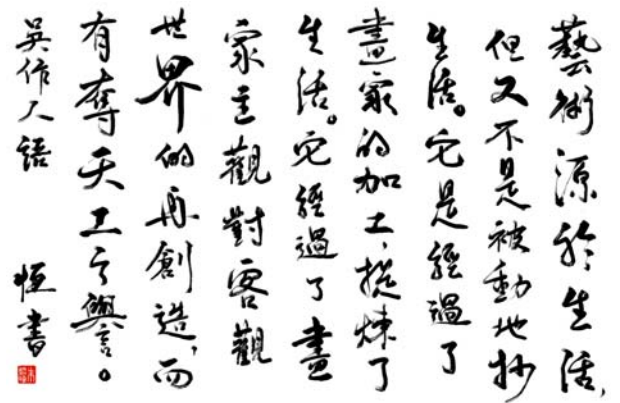 藝術源於生活,
但又不是被動地抄
生活。它是經過了
畫家的加工、提煉了
生活。它經過了畫
家主觀對客觀
世界的再創造,而
有奪天工之譽。
吳作人語 恒書